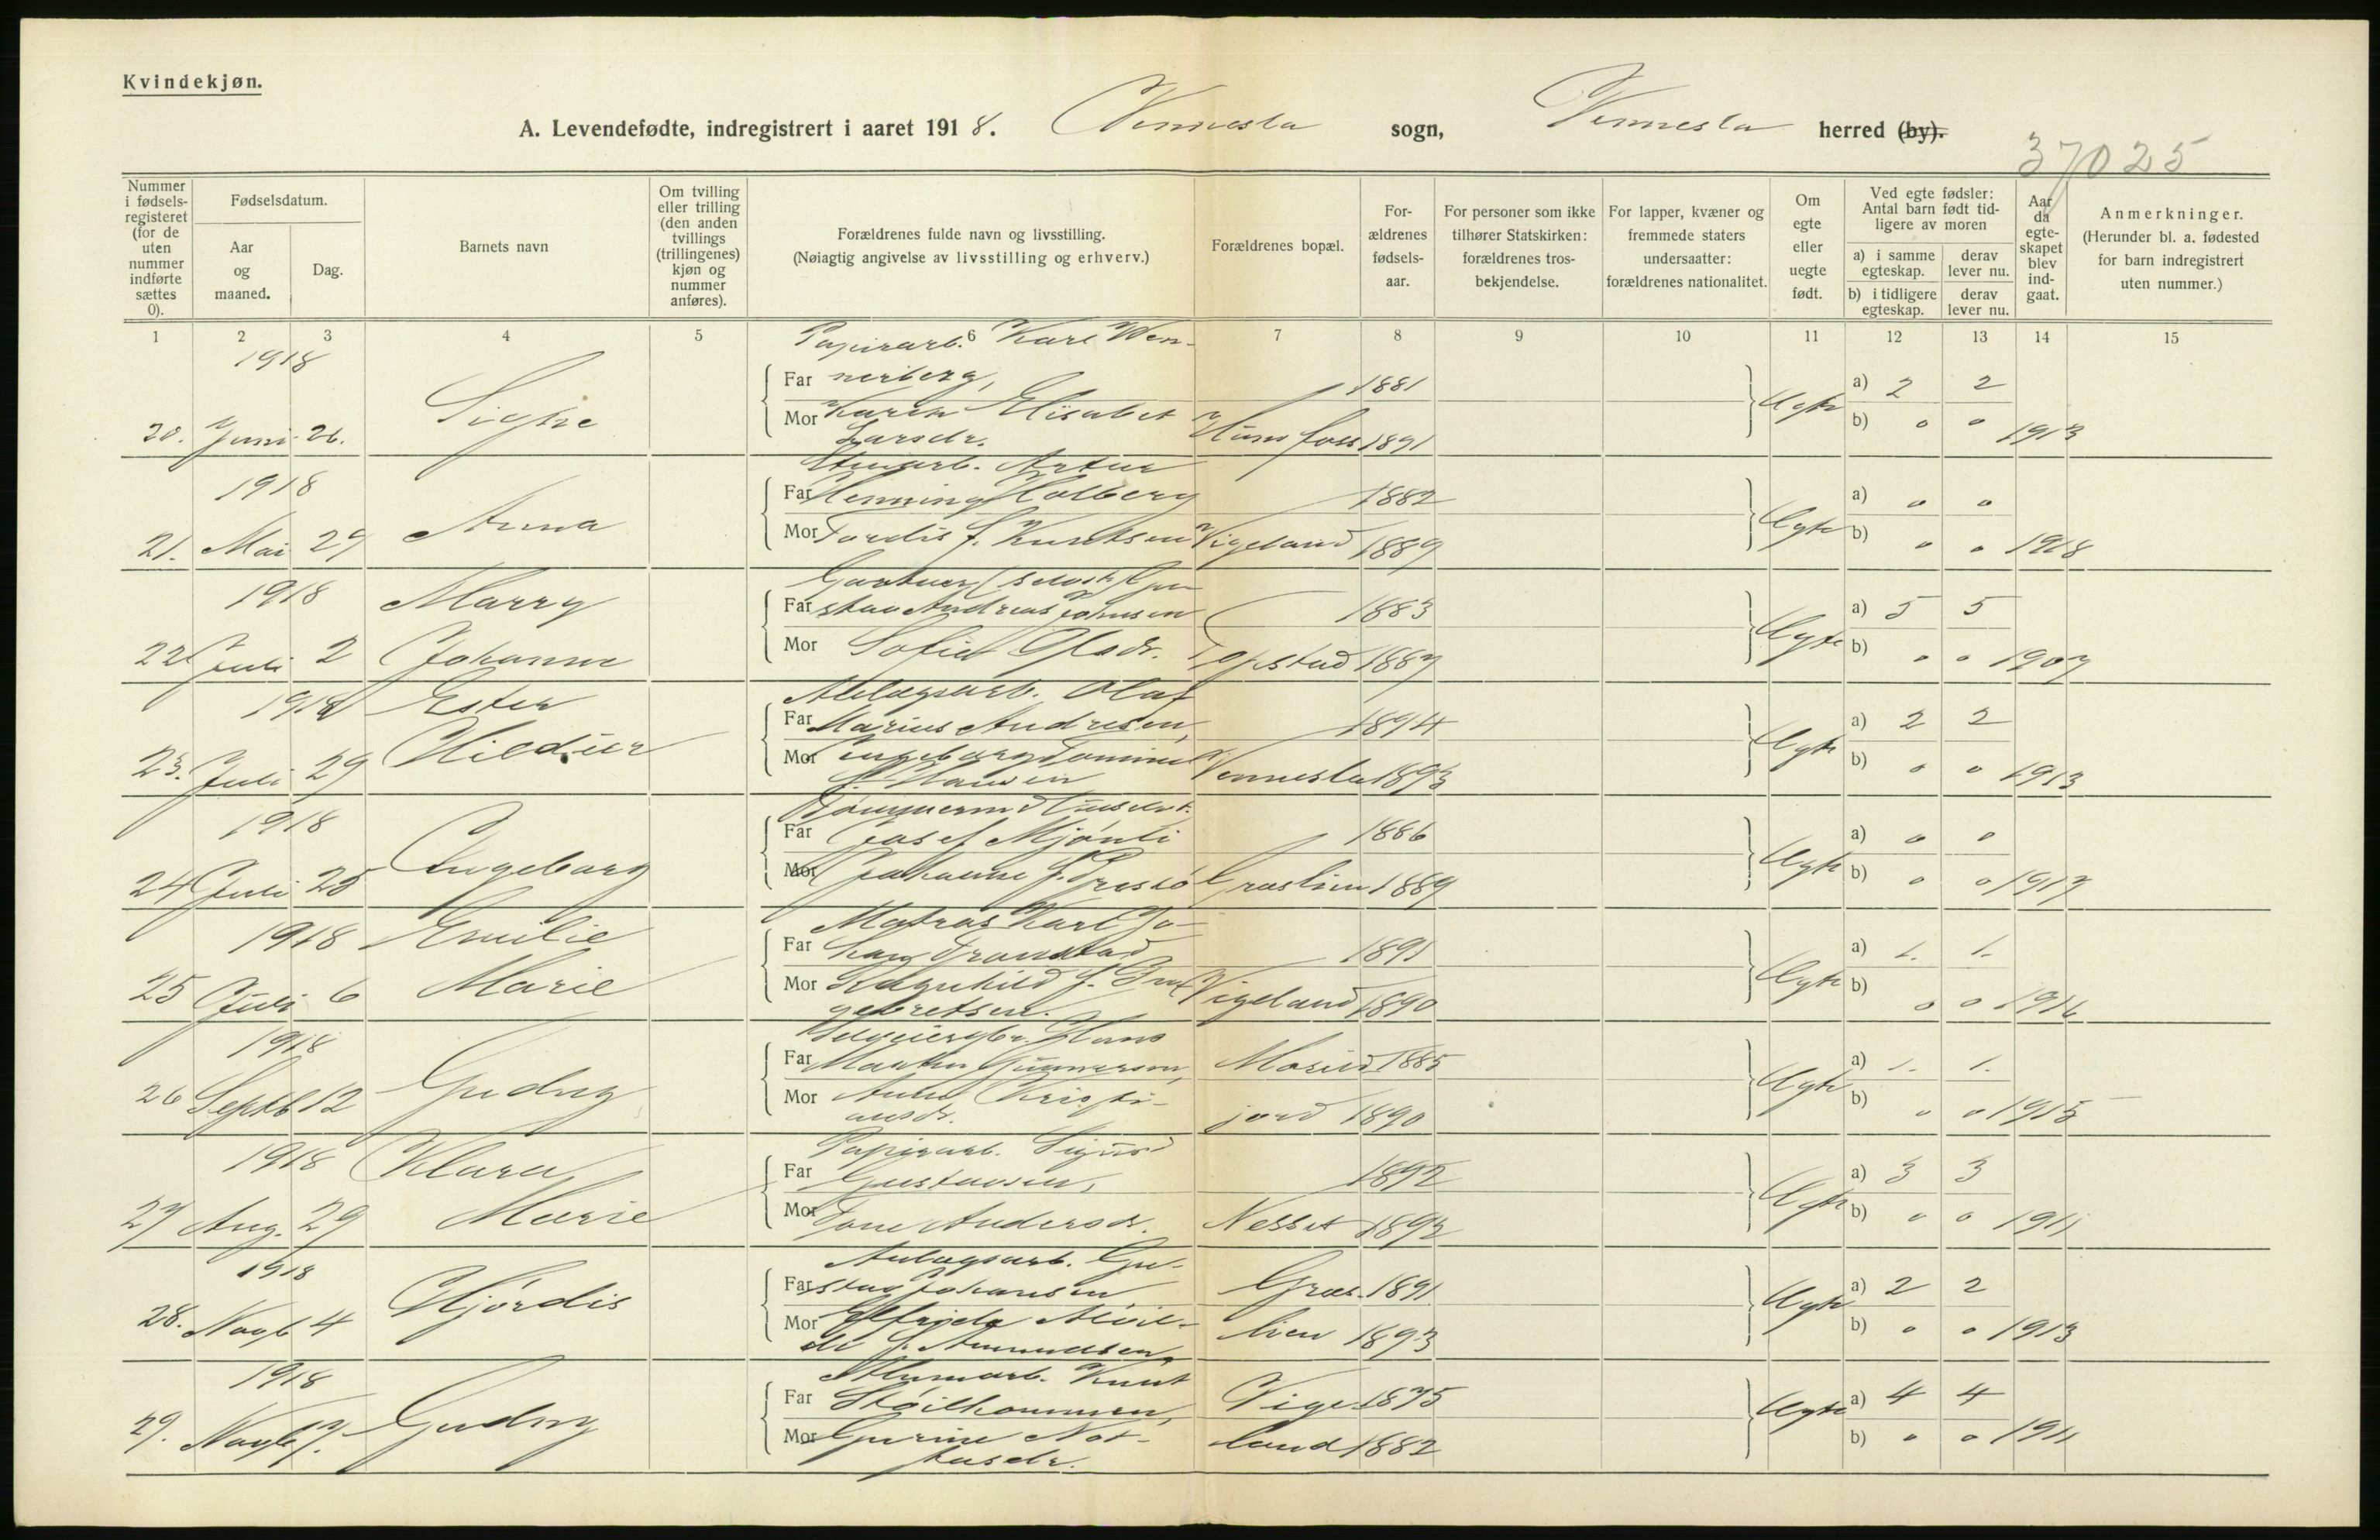 Kvindekjøn.
A. Levendefødte, indregistrert i aaret 1918. Vennesla sogn, Vennesla herred (by).
37025
Nummer i fødselsregisteret (for de uten nummer indførte sættes 0).
Fødselsdatum.
Aar og maaned.
Dag.
Barnets navn
Om tvilling eller trilling (den anden tvillings (trillingenes) kjøn og nummer anføres).
Forældrenes fulde navn og livsstilling.
(Nøiagtig angivelse av livsstilling og erhverv.)
Forældrenes bopæl.
Forældrenes fødselsaar.
For personer som ikke tilhører Statskirken: forældrenes trosbekjendelse.
For lapper, kvæner og fremmede staters undersaatter: forældrenes nationalitet.
Om egte eller uegte født.
Ved egte fødsler: Antal barn født tidligere av moren
a) i samme egteskap.
derav lever nu.
b) i tidligere egteskap.
derav lever nu.
Aar da egteskapet blev indgaat.
Anmerkninger.
(Herunder bl. a. fødested for barn indregistrert uten nummer.)
1 2 3 4 5 6 7 8 9 10 11 12 13 14 15
1918
Papirarb. Karl Wen-
Far nerberg, 1881 a) 2 2
20. Juni 26. Signe Mor Karen Elisabet Hunsfoss 1891 Egte b) " " 1913
Larsdr.
1918
Artur
Far Henning Holberg 1882 a) " "
21. Mai 29 Anna Mor Tordis f. Knutsen Vigeland 1889 Egte b) " " 1918
1918 Marry
Gartner (selvst.) Gu-
Far stav Andreas Johnsen 1883 a) 5 5
22 Juli 2 Johanne Mor Sofie Olsdr. 1887 Egte b) " " 1907
1918 Ester
Anlægsarb. Olaf
Far Marius Andresen, 1894 a) 2 2
23. Juli 29 Hildur Mor Ingeborg Vennesla 1893 Egte b) " " 1913
f. Hansen
1918
Far Josef Mjønli 1886 a) " "
24 Juli 25 Ingeborg Mor Johanne f. Graslien 1889 Egte b) " " 1917
1918 Emilie
Matros Karl Jo-
Far han Tronstad 1891 a) 1. 1.
25 Juli 6 Marie Mor Ragnhild f. Vigeland 1890 Egte b) " " 1916
gebretsen.
1918
Hans
Far Martin Gunnarson, Moseid- 1885 a) 1. 1.
26 Septb 12 Gudny Mor Anna Kristi- jord 1890 Egte b) " " 1915
ansdr.
1918 Klara
Papirarb. Sigurd
Far Gustavsen, 1892 a) 3 3
27 Aug. 29 Marie Mor Tone Andersdr. Nesset 1892 Egte b) " " 1911
1918
Anlægsarb. Gu-
Far stav Johansen Gras- 1891 a) 2 2
28. Novb 4 Hjørdis Mor Elfrida Alvil- lien 1893 Egte b) " " 1913
de f. Amundsen,
1918
Knut
Far Vige- 1875 a) 4 4
29. Novb 7. Gudny Mor Gurine Not- land 1882 Egte b) " " 1911
tusdr.